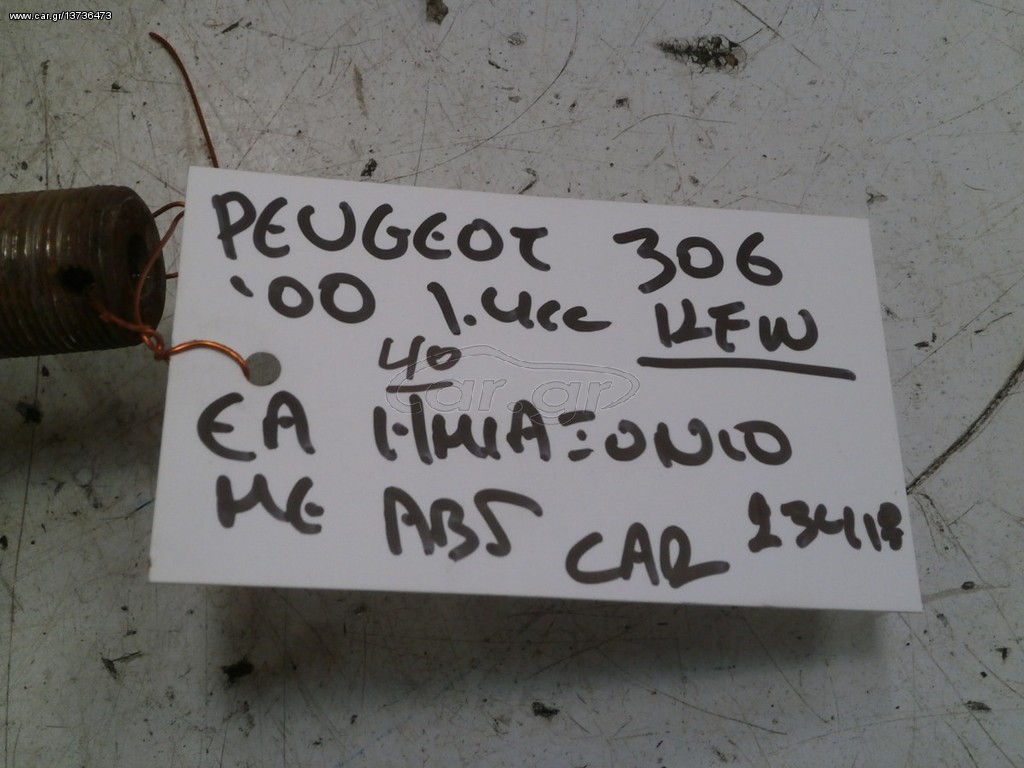 www.car.gr/13736473
PEUGEOT 306
'00 1.4cc KFW
40
EA ΗΜΙΑΞΟΝΙΟ
car.gr
ΜΕ ABS CAR 23418